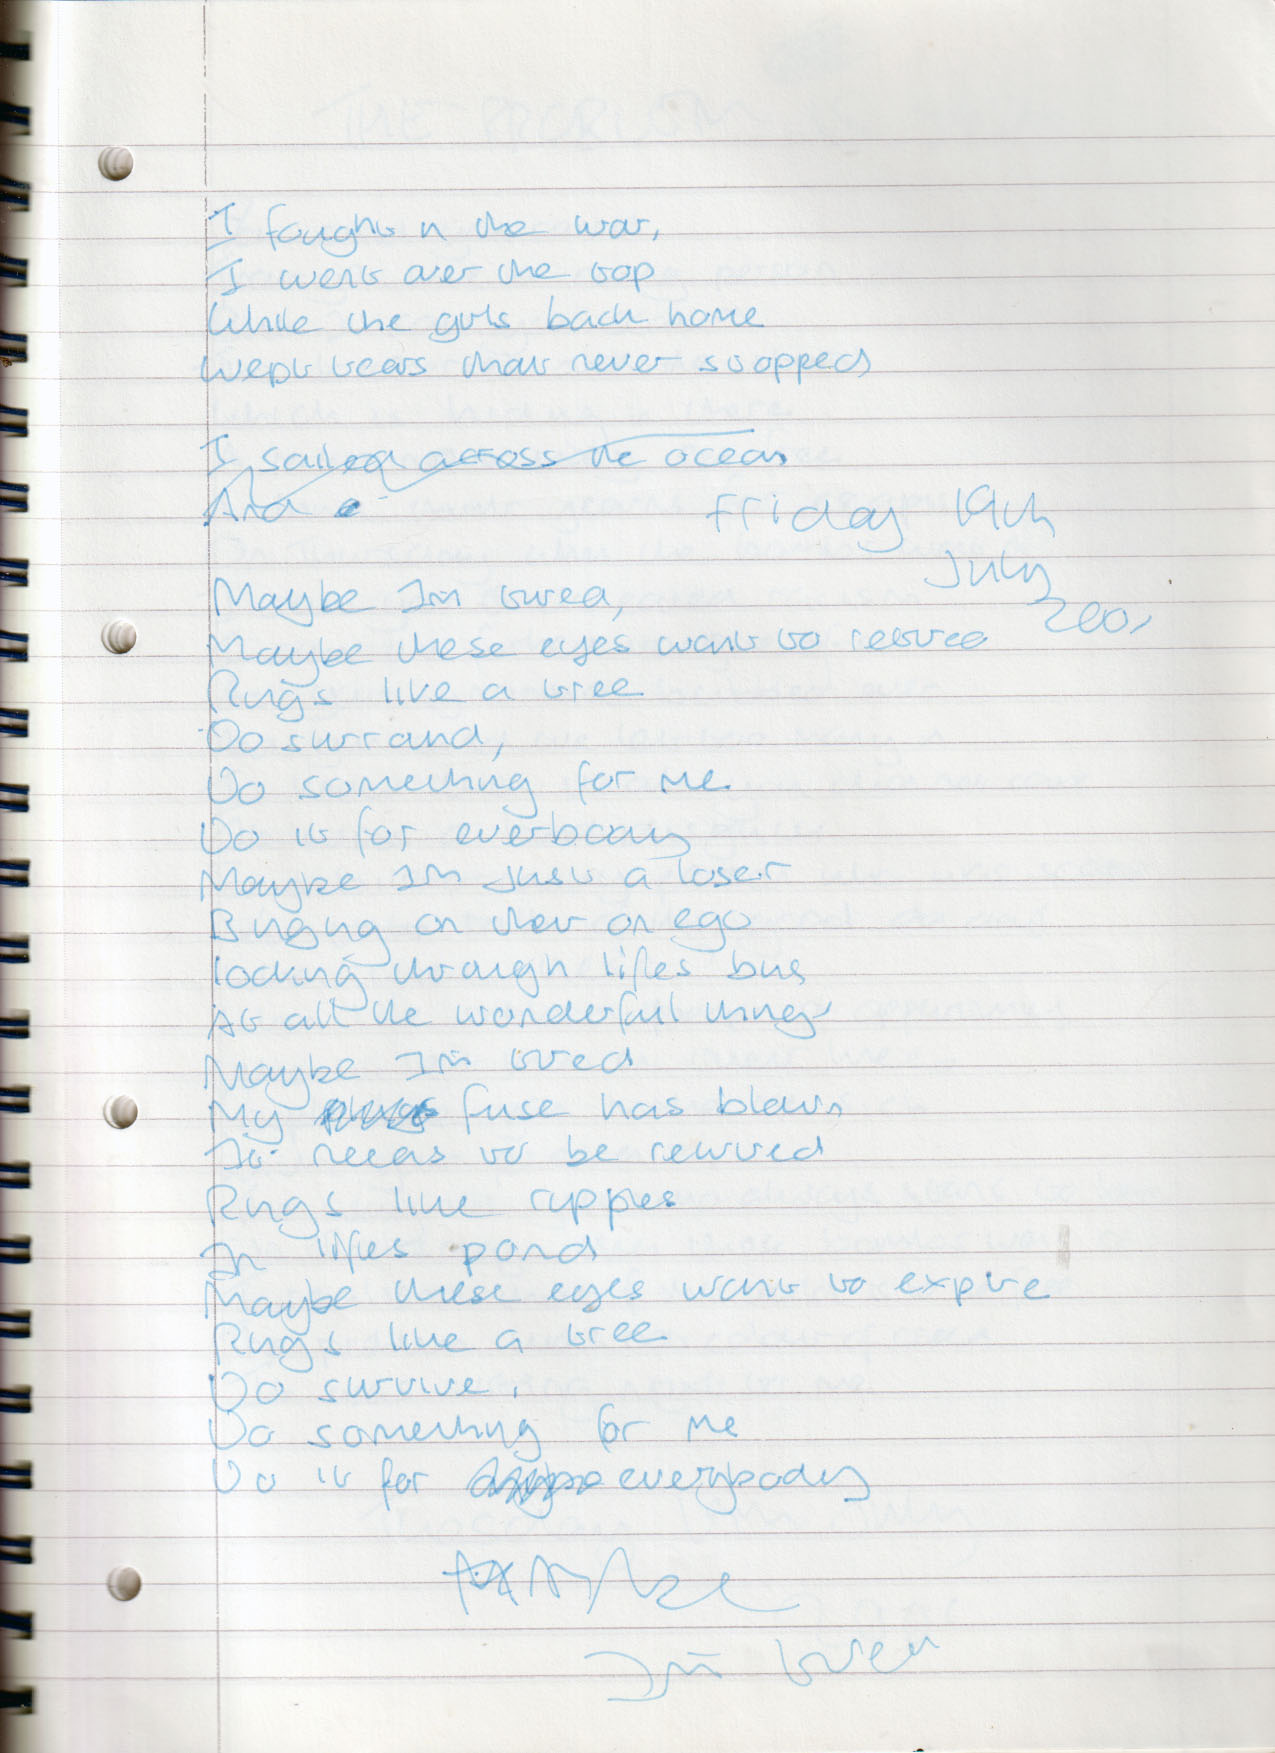 I fought n the war,
I went over the top
While the girls back home
Wept tears that never stopped
I sailed across the ocean
And
Friday 19th
July
Maybe Im tired,
Maybe these eyes want to retire
Rings like a tree
Do surrand,
Do something for me
Do it for everbody
Maybe Im just a loser
Binging on their on ego
looking through lifes bins
At all the wonderful things
Maybe Im tired
My fuse has blown
It needs to be rewired
Rings like ripples
In lifes pond
Maybe these eyes want to expire
Rings like a tree
Do survive.
Do something for me
Do it for everybody
Maybe
Im tired